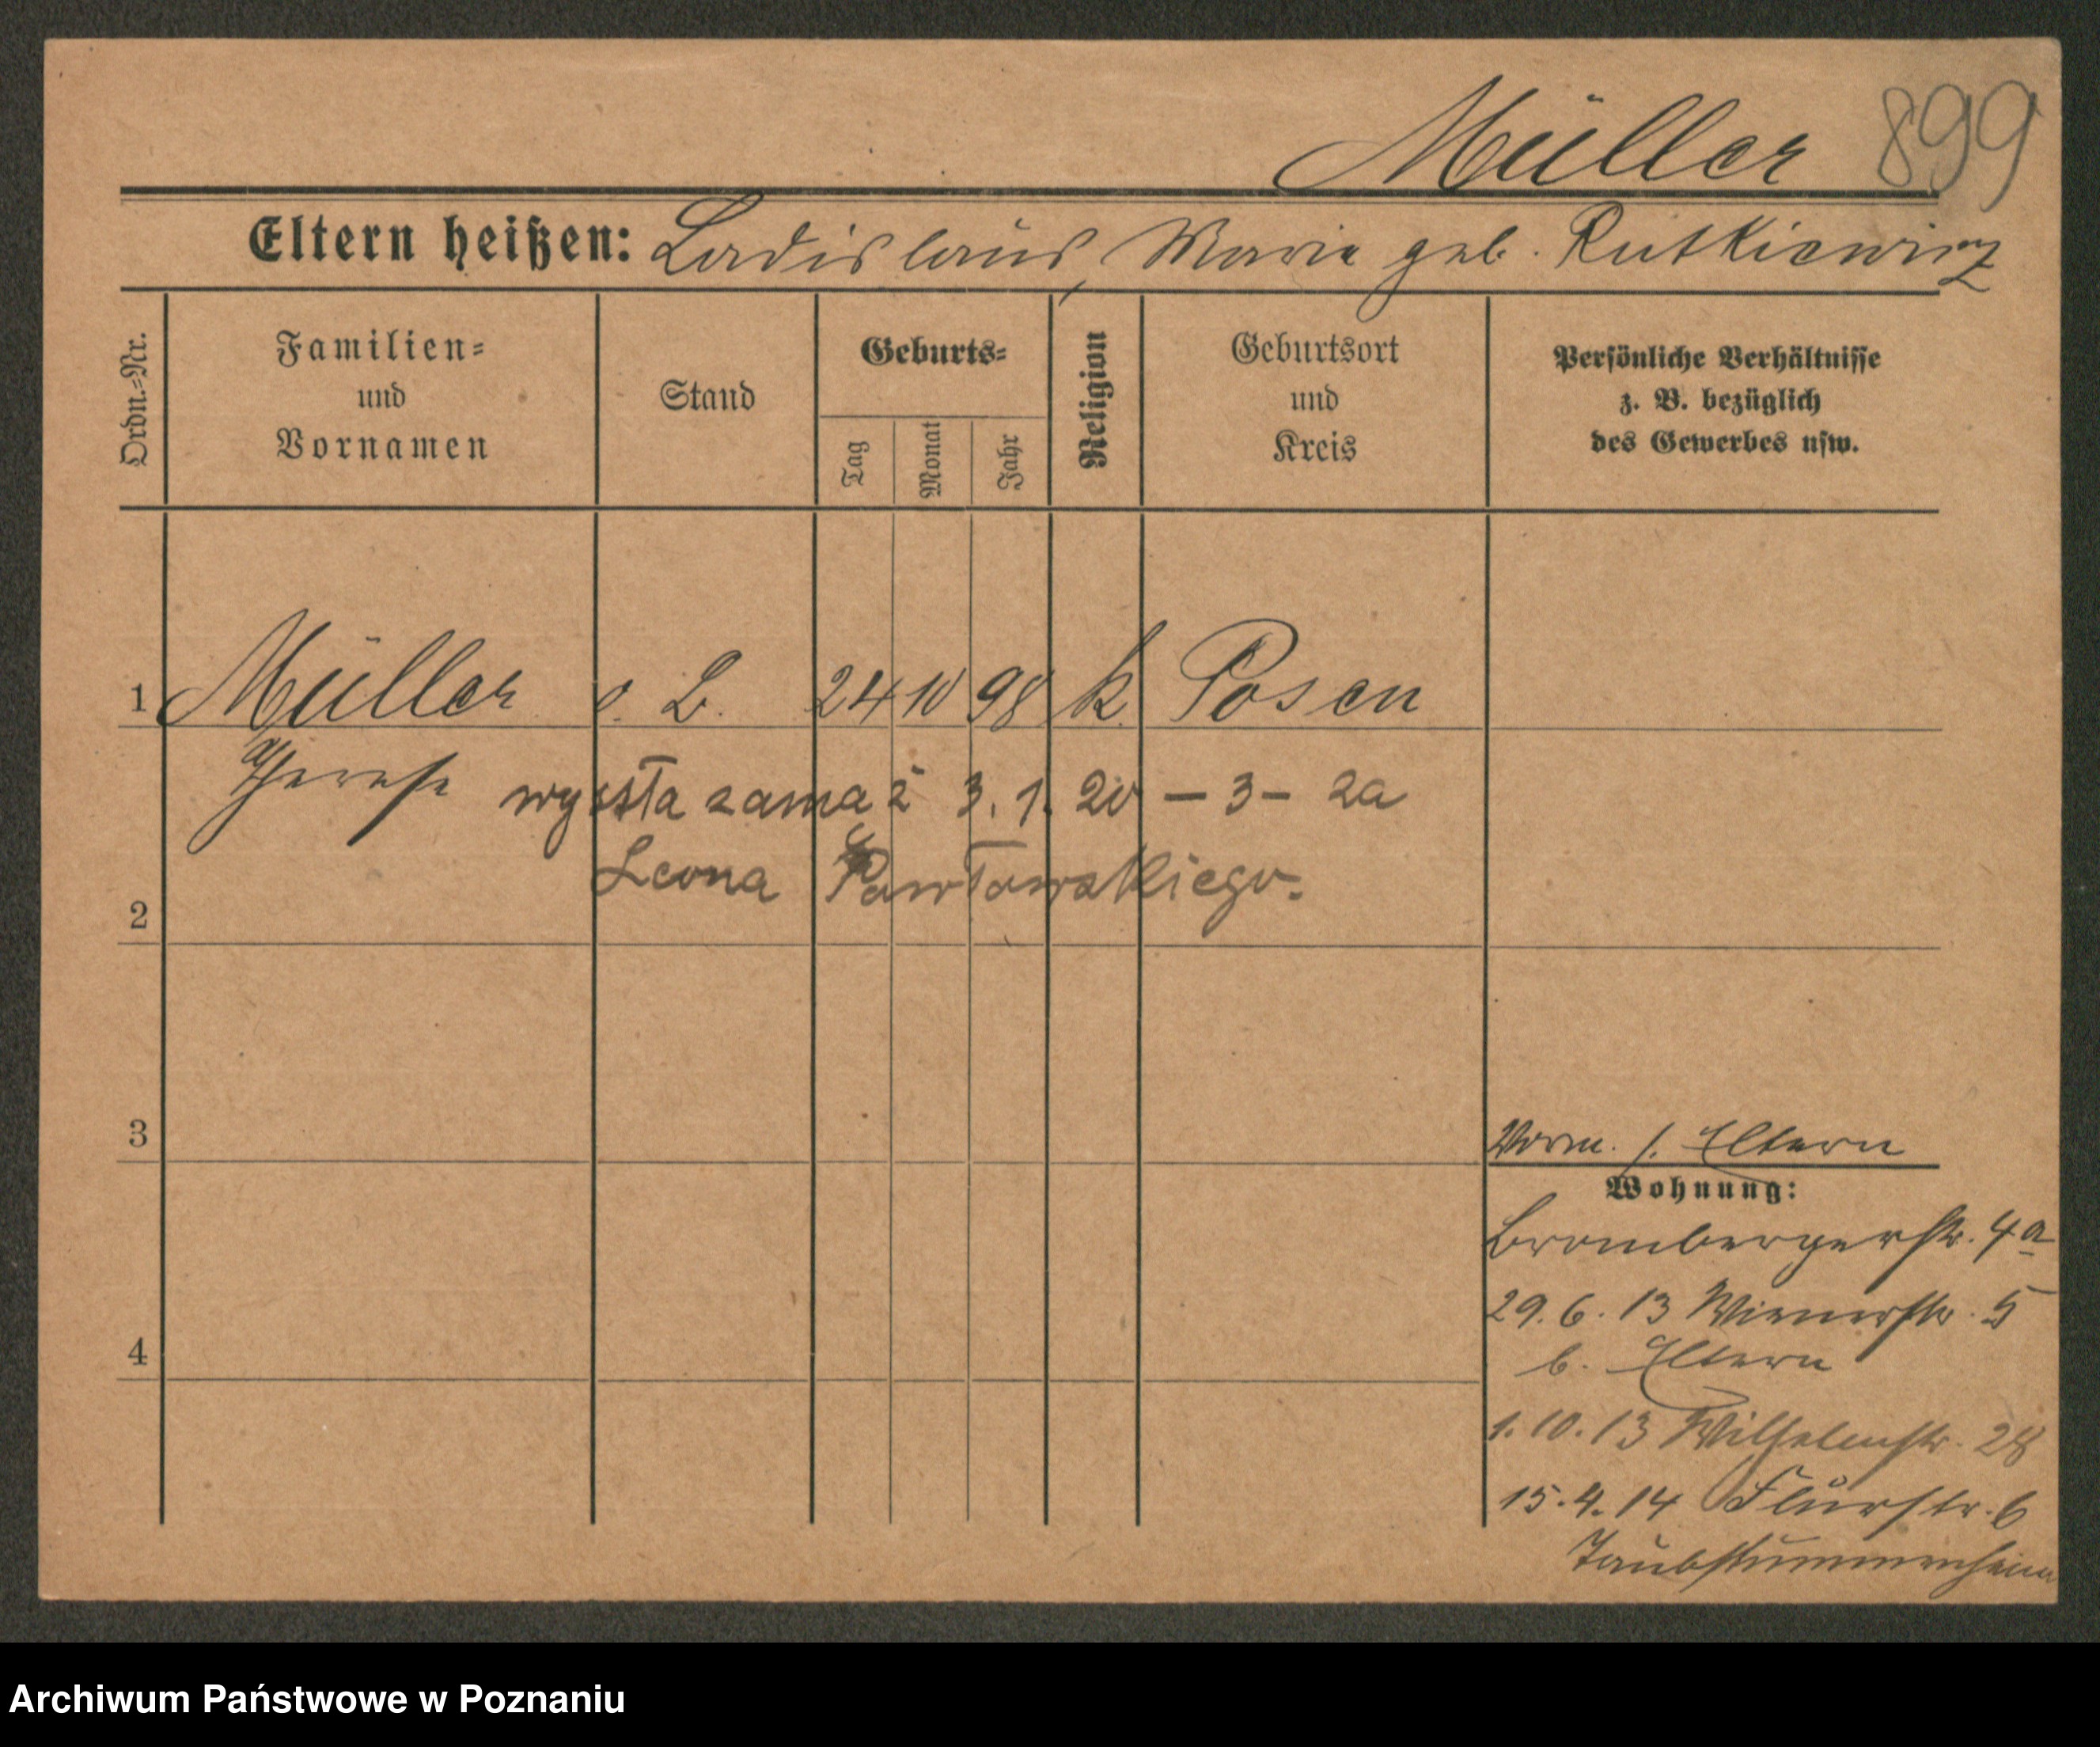 Müller 899
Eltern heißen: Ladislaus, Marie geb. Rutkiewicz
Ordn.=Nr.
Familien=
und
Vornamen
Stand
Geburts=
Tag
Monat
Jahr
Religion
Geburtsort
und
Kreis
Persönliche Verhältnisse
z. B. bezüglich
des Gewerbes usw.
1 Müller o. B. 24 10 98 k. Posen
Therese wyszła zamąż 3.1.20 – 3 – za
Leona Pawławskiego.
2
3
4
Vorm. s. Eltern
Wohnung:
Brombergerstr. 4a
29.6.13 Wienerstr. 5
b. Eltern
1.10.13 Wilhelmstr. 28
15.4.14 Flurstr. 6
Taubstummenheim
Archiwum Państwowe w Poznaniu